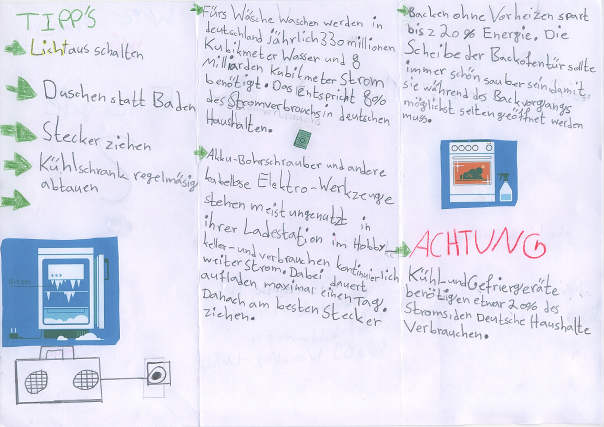 TIPP'S
Licht aus schalten
Duschen statt Baden
Stecker ziehen
Kühlschrank regelmäsig
abtauen
Fürs Wäsche Waschen werden in
deutschland Jährlich 330 millionen
Kubikmeter Wasser und 8
Milliarden kubikmeter Strom
benötigt. Das Entspricht 80%
des Stromverbrauchs in deutschen
Haushalten.
Akku-Bohrschrauber und andere
kabellose Elektro-Werkzeuge
stehen meist ungenutzt in
ihrer Ladestation im Hobby
keller-und verbrauchen kontinuierlich
weiter Strom. Dabei dauert
aufladen maximal einen Tag.
Danach am besten Stecker
ziehen.
Backen ohne Vorheizen spart
bis z 20% Energie. Die
Scheibe der Backofentür sollte
immer schön sauber sein damit
sie während des Backvorgangs
möglichst selten geöffnet werden
muss.
ACHTUNG
Kühl und Gefriergeräte
benötigen etwar 20% des
Stroms, den Deutsche Haushalte
Verbrauchen.